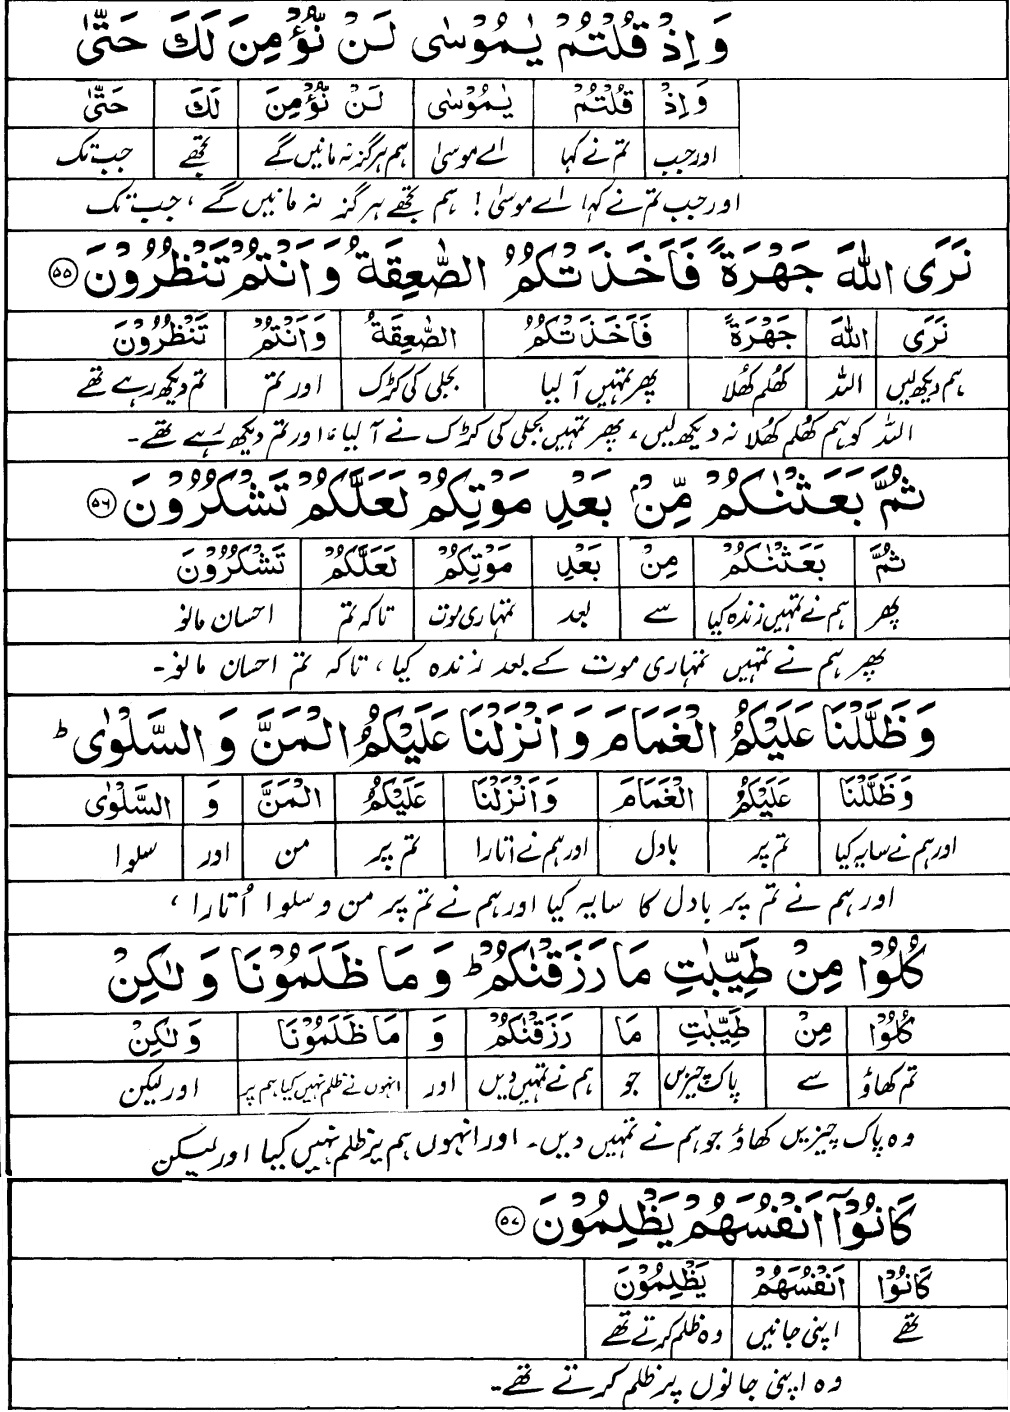 وَ اِذْ قُلْتُمْ یٰمُوْسٰی لَنْ نُّؤْمِنَ لَكَ حَتّٰی
وَ اِذْ قُلْتُمْ یٰمُوْسٰی لَنْ نُّؤْمِنَ لَكَ حَتّٰی
اور جب تم نے کہا اے موسیٰ ہم ہرگز نہ مانیں گے تجھے جب تک
اور جب تم نے کہا اے موسیٰ! ہم تجھے ہرگز نہ مانیں گے، جب تک
نَرَی اللّٰهَ جَهْرَةً فَاَخَذَتْكُمُ الصّٰعِقَةُ وَ اَنْتُمْ تَنْظُرُوْنَ ۵۵
نَرَی اللّٰهَ جَهْرَةً فَاَخَذَتْكُمُ الصّٰعِقَةُ وَ اَنْتُمْ تَنْظُرُوْنَ
ہم دیکھ لیں اللہ کھُلم کھُلا پھر تمہیں آ لیا بجلی کی کڑک اور تم تم دیکھ رہے تھے
اللہ کو ہم کھُلم کھُلا نہ دیکھ لیں، پھر تمہیں بجلی کی کڑک نے آ لیا، اور تم دیکھ رہے تھے۔
ثُمَّ بَعَثْنٰكُمْ مِّنْۢ بَعْدِ مَوْتِكُمْ لَعَلَّكُمْ تَشْكُرُوْنَ ۵۶
ثُمَّ بَعَثْنٰكُمْ مِنْ بَعْدِ مَوْتِكُمْ لَعَلَّكُمْ تَشْكُرُوْنَ
پھر ہم نے تمہیں زندہ کیا سے بعد تمہاری موت تاکہ تم احسان مانو
پھر ہم نے تمہیں تمہاری موت کے بعد زندہ کیا، تاکہ تم احسان مانو۔
وَ ظَلَّلْنَا عَلَیْكُمُ الْغَمَامَ وَ اَنْزَلْنَا عَلَیْكُمُ الْمَنَّ وَ السَّلْوٰی ؕ
وَ ظَلَّلْنَا عَلَیْكُمُ الْغَمَامَ وَ اَنْزَلْنَا عَلَیْكُمُ الْمَنَّ وَ السَّلْوٰی
اور ہم نے سایہ کیا تم پر بادل اور ہم نے اتارا تم پر من اور سلوا
اور ہم نے تم پر بادل کا سایہ کیا اور ہم نے تم پر من و سلوا اُتارا،
كُلُوْا مِنْ طَیِّبٰتِ مَا رَزَقْنٰكُمْ ؕ وَ مَا ظَلَمُوْنَا وَ لٰكِنْ
كُلُوْا مِنْ طَیِّبٰتِ مَا رَزَقْنٰكُمْ وَ مَا ظَلَمُوْنَا وَ لٰكِنْ
تم کھاؤ سے پاک چیزیں جو ہم نے تمہیں دیں اور انہوں نے ظلم نہیں کیا ہم پر اور لیکن
وہ پاک چیزیں کھاؤ جو ہم نے تمہیں دیں۔ اور انہوں ہم پر ظلم نہیں کیا اور لیکن
كَانُوْۤا اَنْفُسَهُمْ یَظْلِمُوْنَ ۵۷
كَانُوْا اَنْفُسَهُمْ یَظْلِمُوْنَ
تھے اپنی جانیں وہ ظلم کرتے تھے
وہ اپنی جانوں پر ظلم کرتے تھے۔